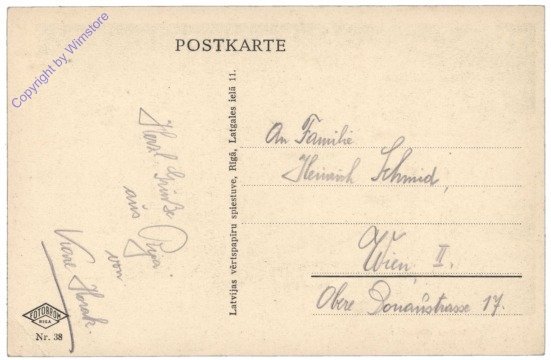 Copyright by Wimstore
POSTKARTE
Herzl. Grüße
aus Riga
von
Horak.
Latvijas vērtspapīru spiestuve, Rīgā, Latgales ielā 11.
An Familie
Heinrich Schmid,
Wien, II.
Obere Donaustrasse 17.
FOTOBROM
RIGA
Nr. 38